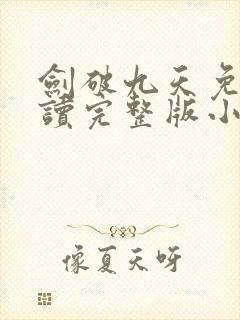 劍破九天免
讀完整版小
像夏天呀